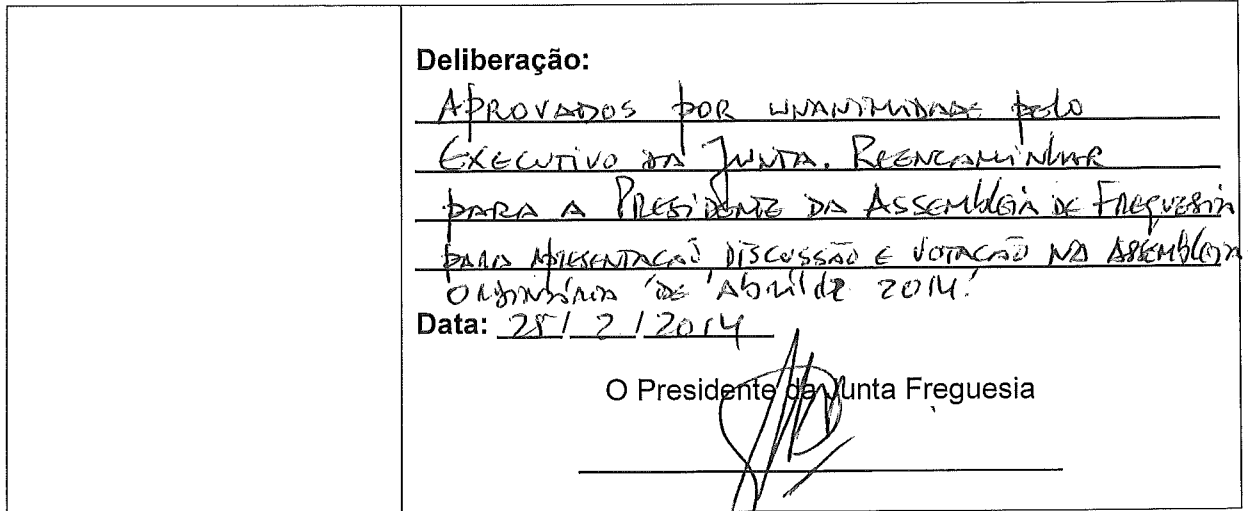 Deliberação:
APROVADOS POR UNANIMIDADE PELO
EXECUTIVO DA JUNTA. REENCAMINHAR
PARA A PRESIDENTE DA ASSEMBLEIA DE FREGUESIA
PARA APRESENTAÇÃO DISCUSSÃO E VOTAÇÃO NA ASSEMBLEIA
ORDINÁRIA DE ABRIL DE 2014.
Data: 25/ 2 / 2014
O Presidente da Junta Freguesia